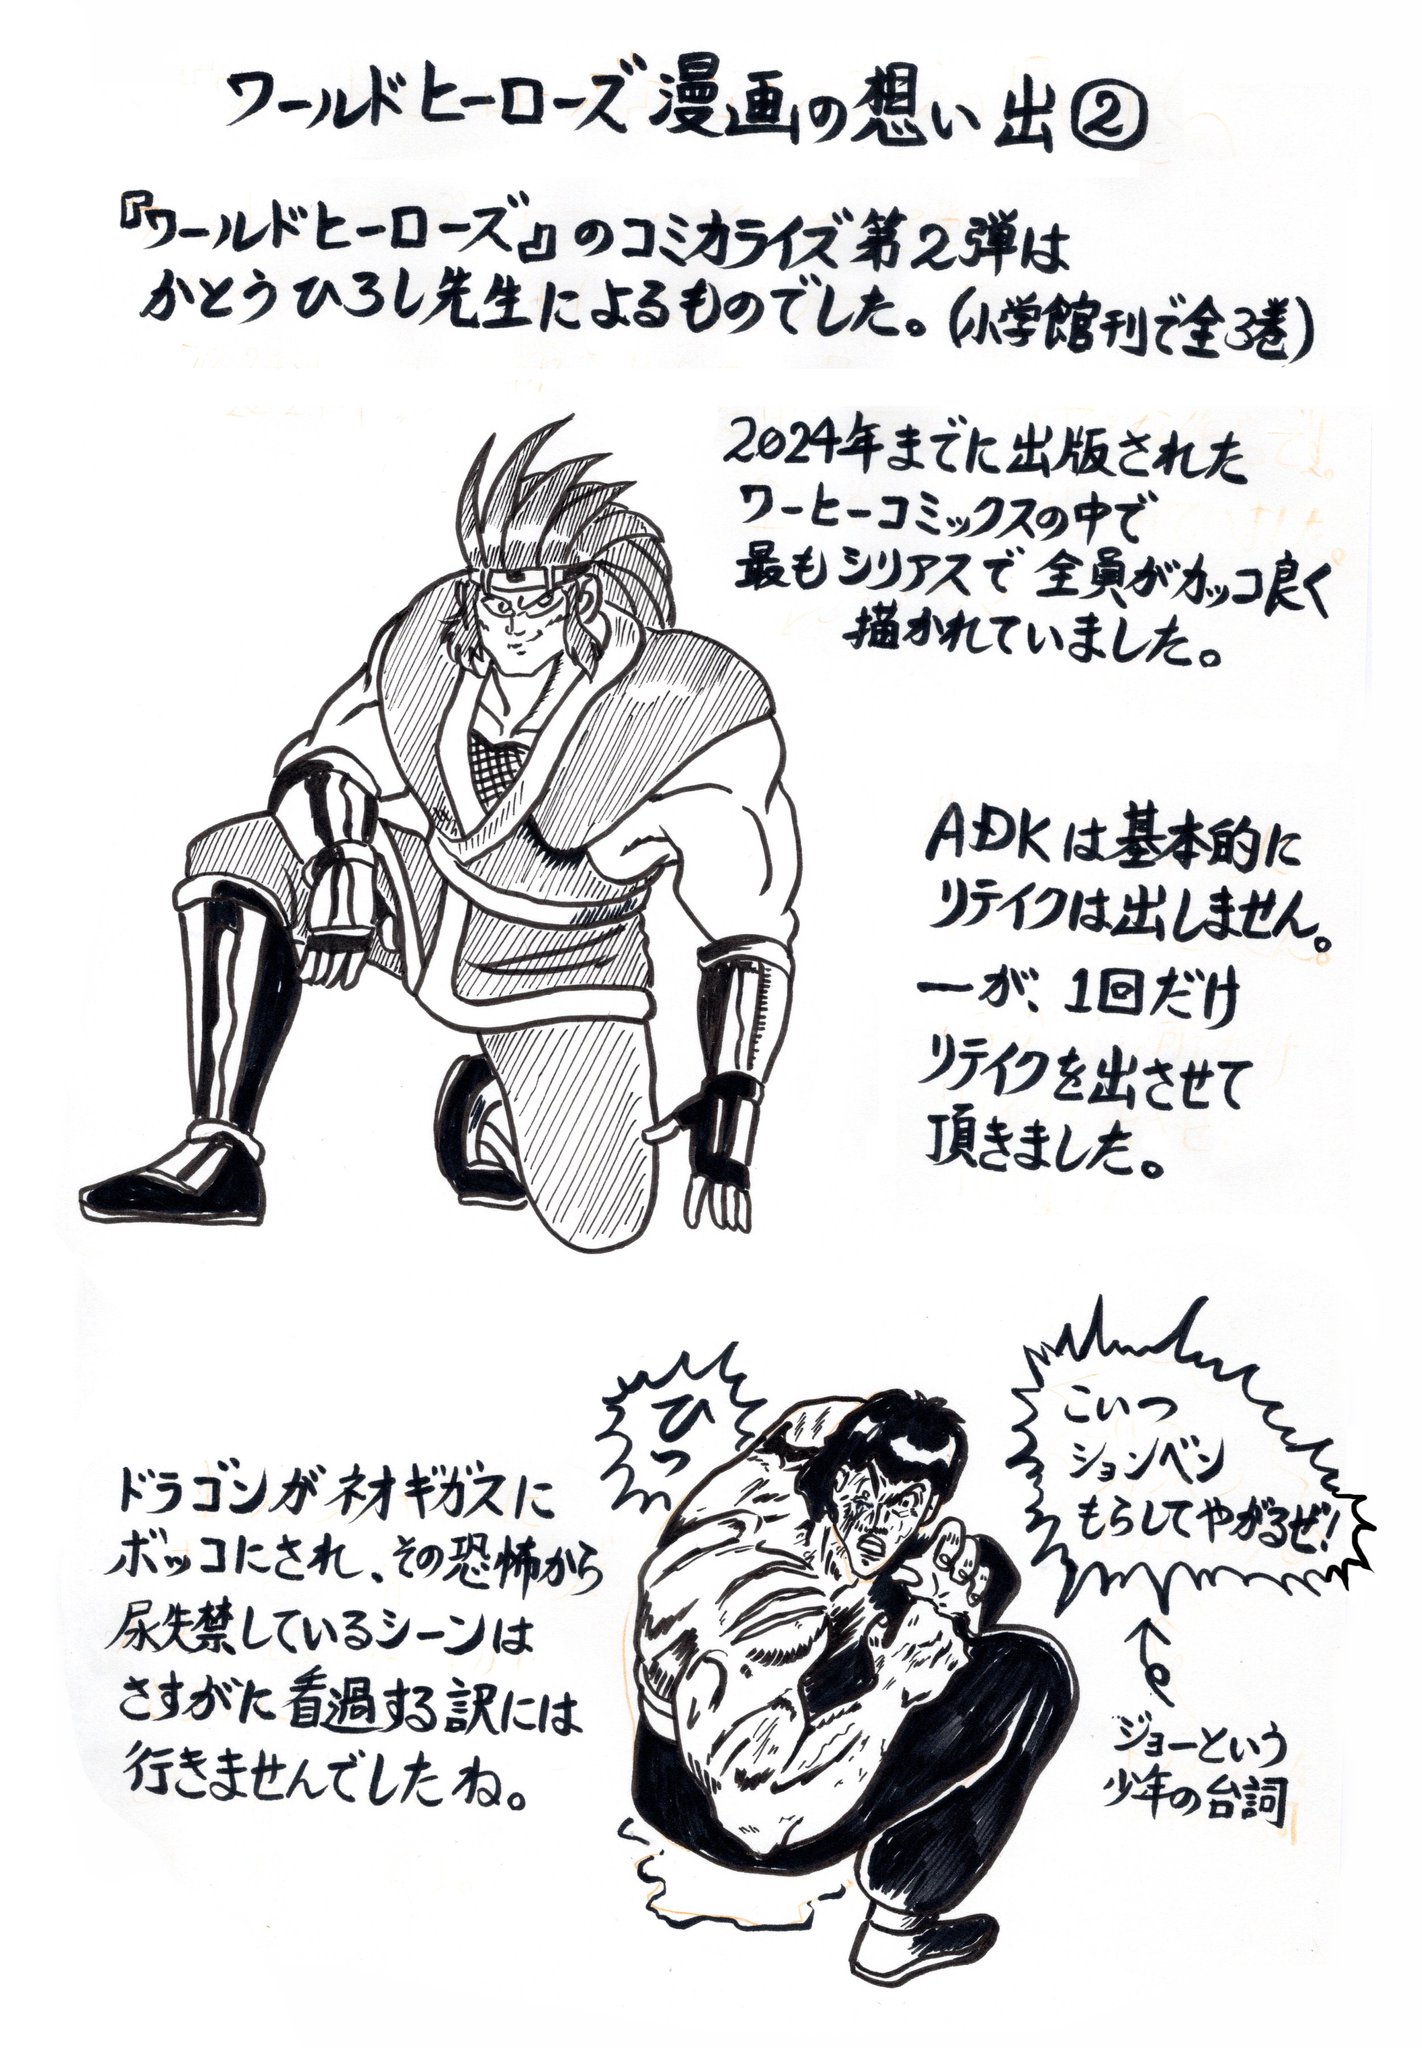 ワールドヒーローズ漫画の想い出②
『ワールドヒーローズ』のコミカライズ第2弾は
かとうひろし先生によるものでした。(小学館刊で全3巻)
2024年までに出版された
ワーヒーコミックスの中で
最もシリアスで全員がカッコ良く
描かれていました。
ADKは基本的に
リテイクは出しません。
ーが、1回だけ
リテイクを出させて
頂きました。
ひっ
こいつ
ションベン
もらしてやがるぜ!
ドラゴンがネオギガスに
ボッコにされ、その恐怖から
尿失禁しているシーンは
さすがに看過する訳には
行きませんでしたね。
ジョーという
少年の台詞